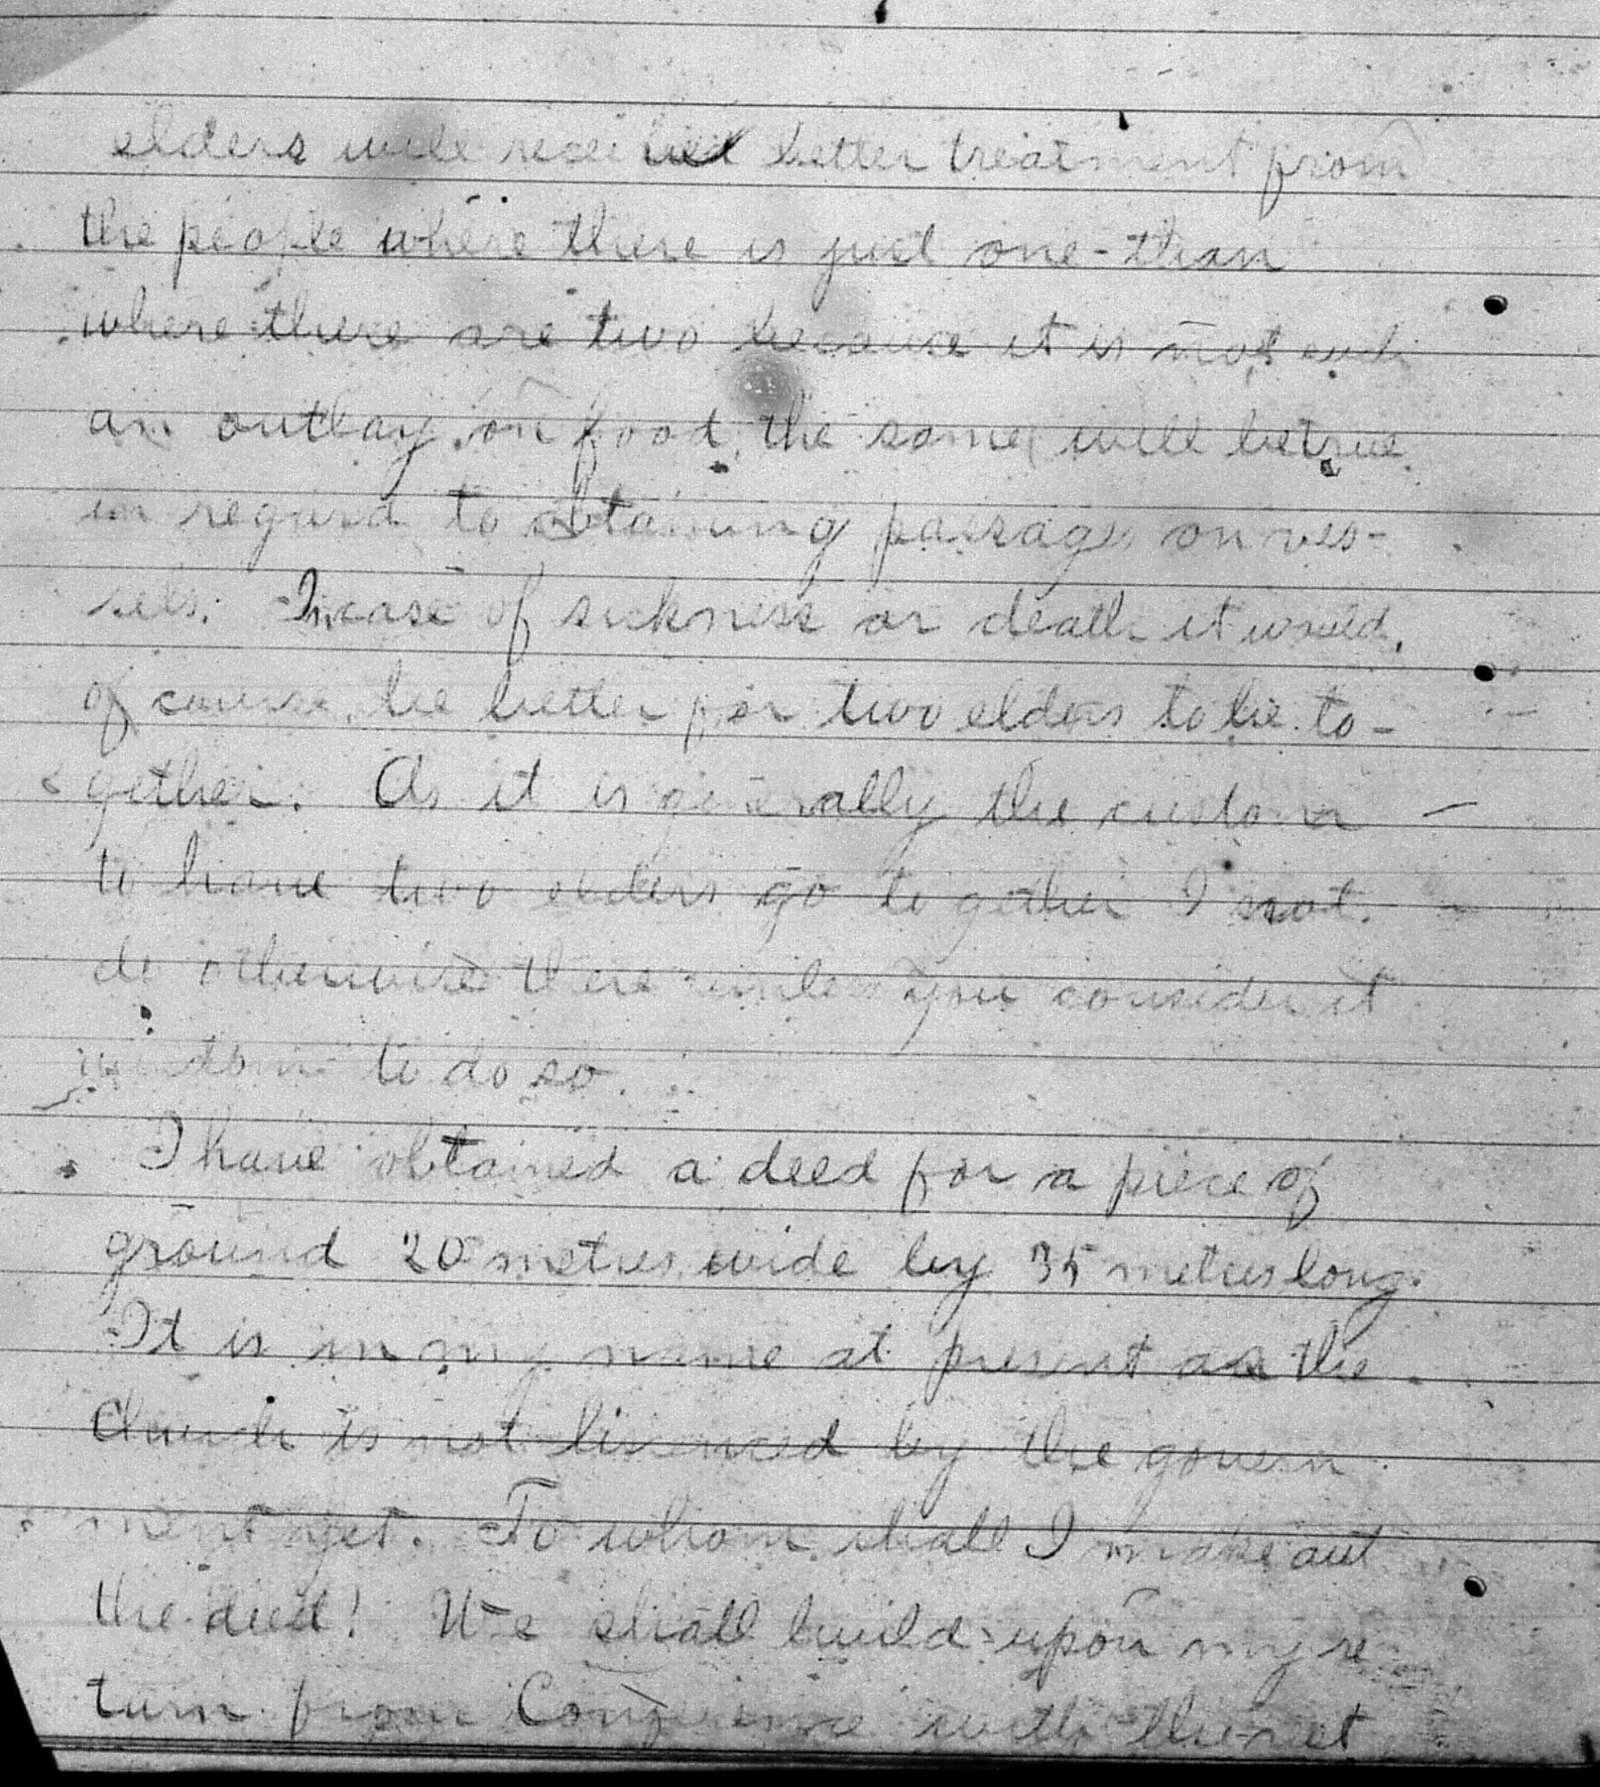 elders will receive better treatment from
the people where there is just one - than
where there are two because it is not such
an outlay on food, the same will be true
in regard to obtaining passages on ves-
sels. In case of sickness or death it would,
of course, be better for two elders to be to-
gether. As it is generally the custom
to have two elders go together I not
do otherwise there unless you consider it
to do so.
I have obtained a deed for a piece of
ground 20 metres wide by 35 metres long.
It is in my name at present as the
Church is not licensed by the govern
ment yet. To whom shall I make out
the deed! We shall build upon my re
turn from Conference with the